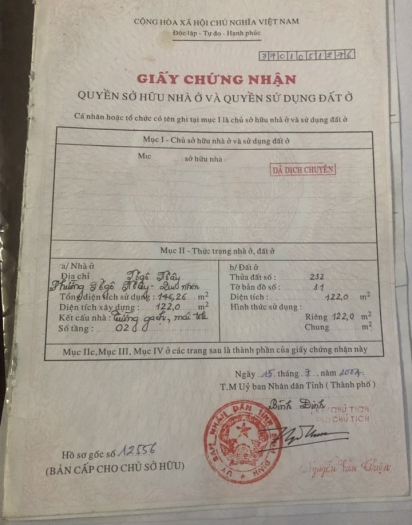 CỘNG HÒA XÃ HỘI CHỦ NGHĨA VIỆT NAM
Độc lập - Tự do - Hạnh phúc
GIẤY CHỨNG NHẬN
QUYỀN SỞ HỮU NHÀ Ở VÀ QUYỀN SỬ DỤNG ĐẤT Ở
Cá nhân hoặc tổ chức có tên ghi tại mục I là chủ sở hữu nhà ở và sử dụng đất ở
Mục I - Chủ sở hữu nhà ở và sử dụng đất ở
sở hữu nhà
ĐÃ DỊCH CHUYỂN
Mục II - Thực trạng nhà ở, đất ở
a/ Nhà ở
Địa chỉ
Phường Ngô Mây - Quy nhơn
Tổng diện tích sử dụng : 146,26 m²
Diện tích xây dựng : 122,0 m²
Kết cấu nhà : Tường gạch, mái
Số tầng : 02
b/ Đất ở
Thửa đất số : 232
Tờ bản đồ số :
Diện tích : 122,0 m²
Hình thức sử dụng :
Riêng : 122,0 m²
Chung m²
Mục IIc, Mục III, Mục IV ở các trang sau là thành phần của giấy chứng nhận này
Ngày 15, tháng 7, năm 2004
T.M Uỷ ban Nhân dân Tỉnh ( Thành phố )
Bình Định
CHỦ TỊCH
CHỦ TỊCH
Hồ sơ gốc số 12556
(BẢN CẤP CHO CHỦ SỞ HỮU)